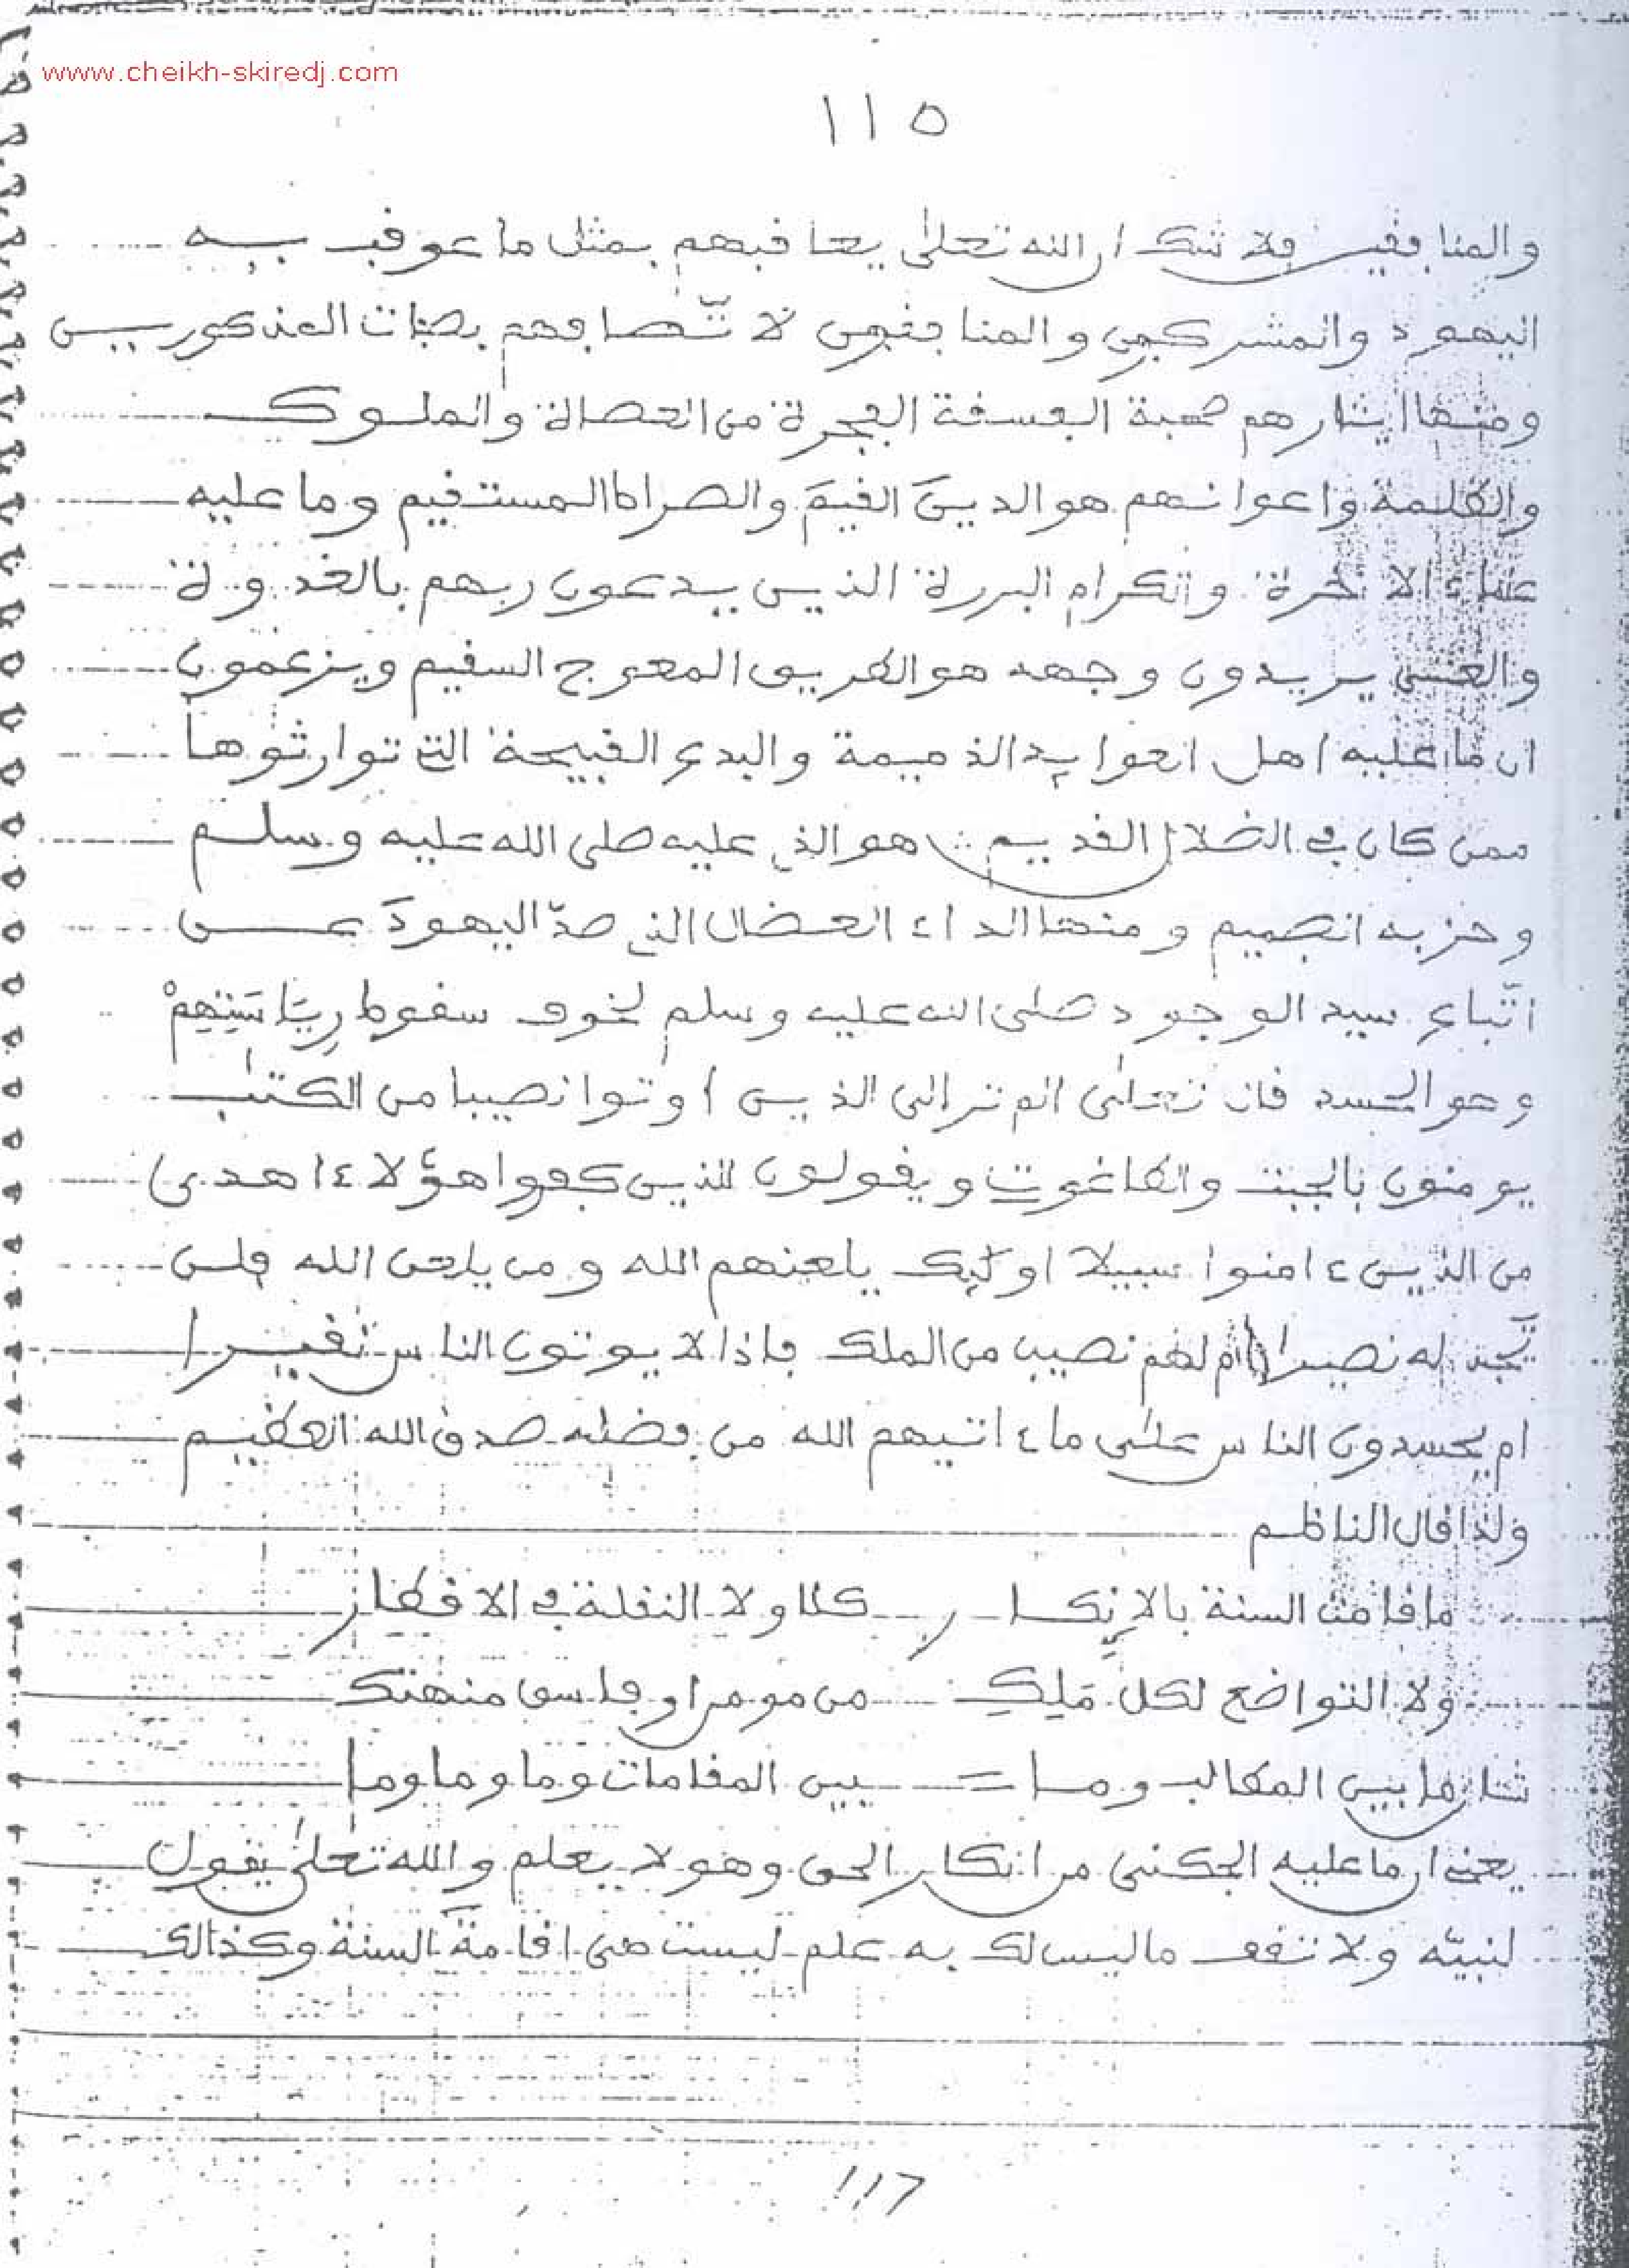 www.cheikh-skiredj.com
١١٥
والمنافقين فلا شك ان الله تعلى يعاقبهم بمثل ما عوقب به
اليهود والمشركين والمنافقين لاتّصافهم بصفات المذكورين
ومنها ايثارهم صحبة الفسفة الفجرة من العصاة والملوك
والظلمة واعوانهم هو الدين القيم والصراط المستقيم وما عليه
علماء الاخرة والكرام البررة الذين يدعون ربهم بالغدوة
والعشى يريدون وجهه هو الطريق المعوج السقيم ويزعمون
ان ما عليه اهل العوايد الذميمة والبدع القبيحة التى توارثوها
ممن كان فى الضلال القديم هو الذى عليه صلى الله عليه وسلم
وحزبه الصميم ومنها الداء العضال الذى صدّ اليهود عن
اتّباع سيد الوجود صلى الله عليه وسلم لخوف سقوط رِيَاسَتِهِمْ
وهو الحسد قال تعلى الم تر الى الذين اوتوا نصيبا من الكتب
يومنون بالجبت والطاغوت ويقولون للذين كفروا هؤلاء اهدى
من الذين ءامنوا سبيلا اولئك يلعنهم الله ومن يلعن الله فلن
تجد له نصيرا ام لهم نصيب من الملك فاذا لا يوتون الناس نقيرا
ام يحسدون الناس على ما ءاتيهم الله من فضله صدق الله العظيم
ولذا قال الناظم
ما قامت السنة بالإنكار كلا ولا النقلة فى الاقطار
ولا التواضع لكل مَلِكِ من مومن او فاسق منهتك
شتان ما بين المطالب وما بين المقامات وما وما وما
يعنى ان ما عليه الجكنى من انكار الحق وهو لا يعلم والله تعلى يقول
لنبيّه ولا تقف ما ليس لك به علم ليست هى اقامة السنة وكذالك
١١٦